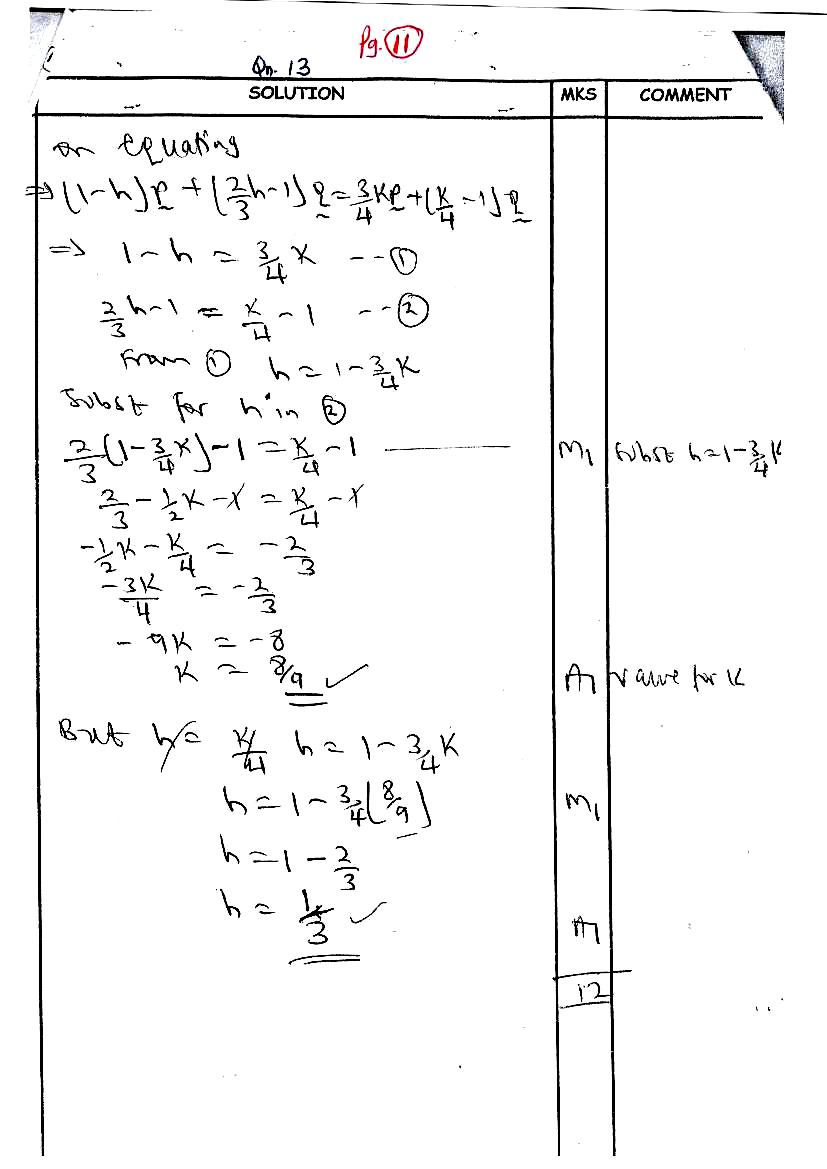 Pg. 11
Qn. 13
SOLUTION MKS COMMENT
on equating
⇒ (1-h)p + (2/3 h - 1) q = 3/4 kp + (k/4 - 1) q
⇒ 1 - h = 3/4 k --①
2/3 h - 1 = k/4 - 1 --②
From ① h = 1 - 3/4 k
Subst for h in ②
2/3 (1 - 3/4 k) - 1 = k/4 - 1 M1 Subst h = 1 - 3/4 k
2/3 - 1/2 k - 1 = k/4 - 1
-1/2 k - k/4 = -2/3
-3k/4 = -2/3
-9k = -8
k = 8/9 ✓ A1 value for k
But h = k/4 h = 1 - 3/4 k
h = 1 - 3/4 (8/9) M1
h = 1 - 2/3
h = 1/3 ✓ A1
12